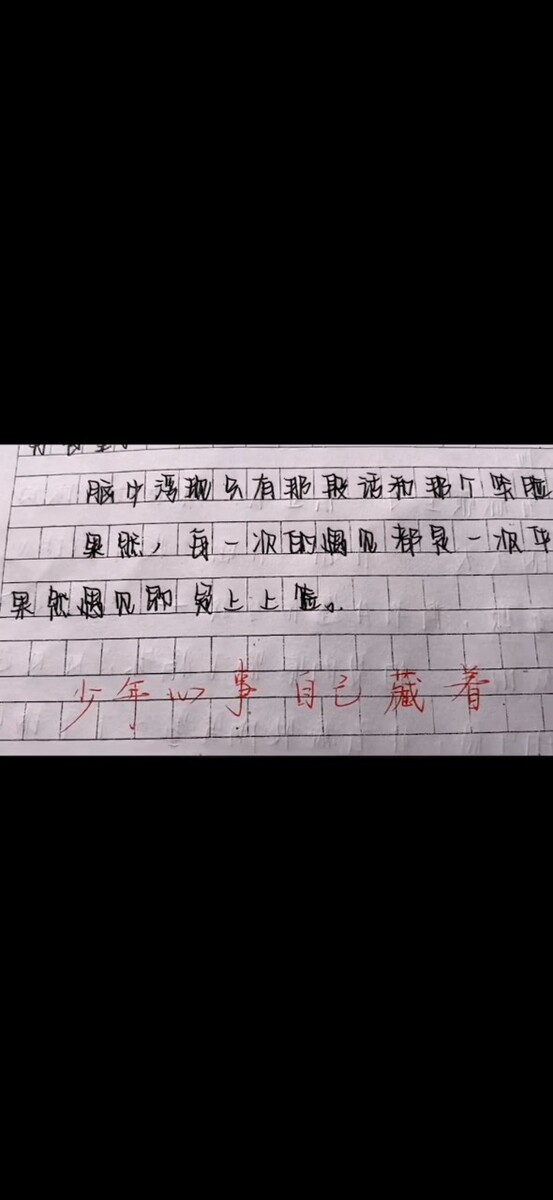 脑中浮现只有那段话和那个笑脸
果然，每一次的遇见都是一次
果然遇见即是上上签。
少年心事自己藏着